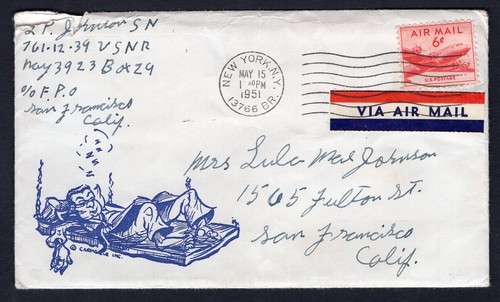 L P. Johnson SN
761-12-39 USNR
Nav 3923 Box 29
c/o F.P.O
San Francisco
Calif.
NEW YORK, N.Y.
MAY 15
1951
13766 BR.
AIR MAIL
6¢
U.S. POSTAGE
VIA AIR MAIL
Mrs Lula Mae Johnson
1565 Fulton St.
San Francisco
Calif.